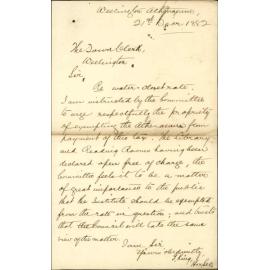 Wellington Athenaeum,
21st Decr 1882
The Town Clerk,
Wellington
Sir,
Re water-closet rate,
I am instructed by the Committee
to urge respectfully the propriety
of exempting the Athenaeum from
payment of this tax. The Library
and Reading Rooms having been
declared open free of charge, the
Committee feels it to be a matter
of great importance to the public
that the Institute should be exempted
from the rate in question, and trusts
that the Council will take the same
view of the matter.
I am Sir
Yours obediently